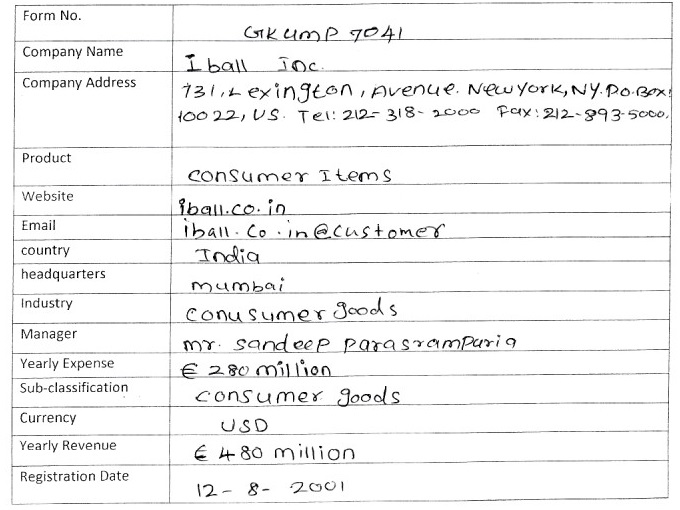 Form No. GKUMP 7041
Company Name Iball Inc.
Company Address 731, Lexington, Avenue. Newyork, NY. Po. Box:
10022, US. Tel: 212-318-2000 Fax: 212-893-5000.
Product consumer Items
Website iball.co.in
Email iball.co.in@customer
country India
headquarters mumbai
Industry conusumer goods
Manager mr. sandeep parasrampuria
Yearly Expense € 280 million
Sub-classification consumer goods
Currency USD
Yearly Revenue € 480 million
Registration Date 12-8-2001